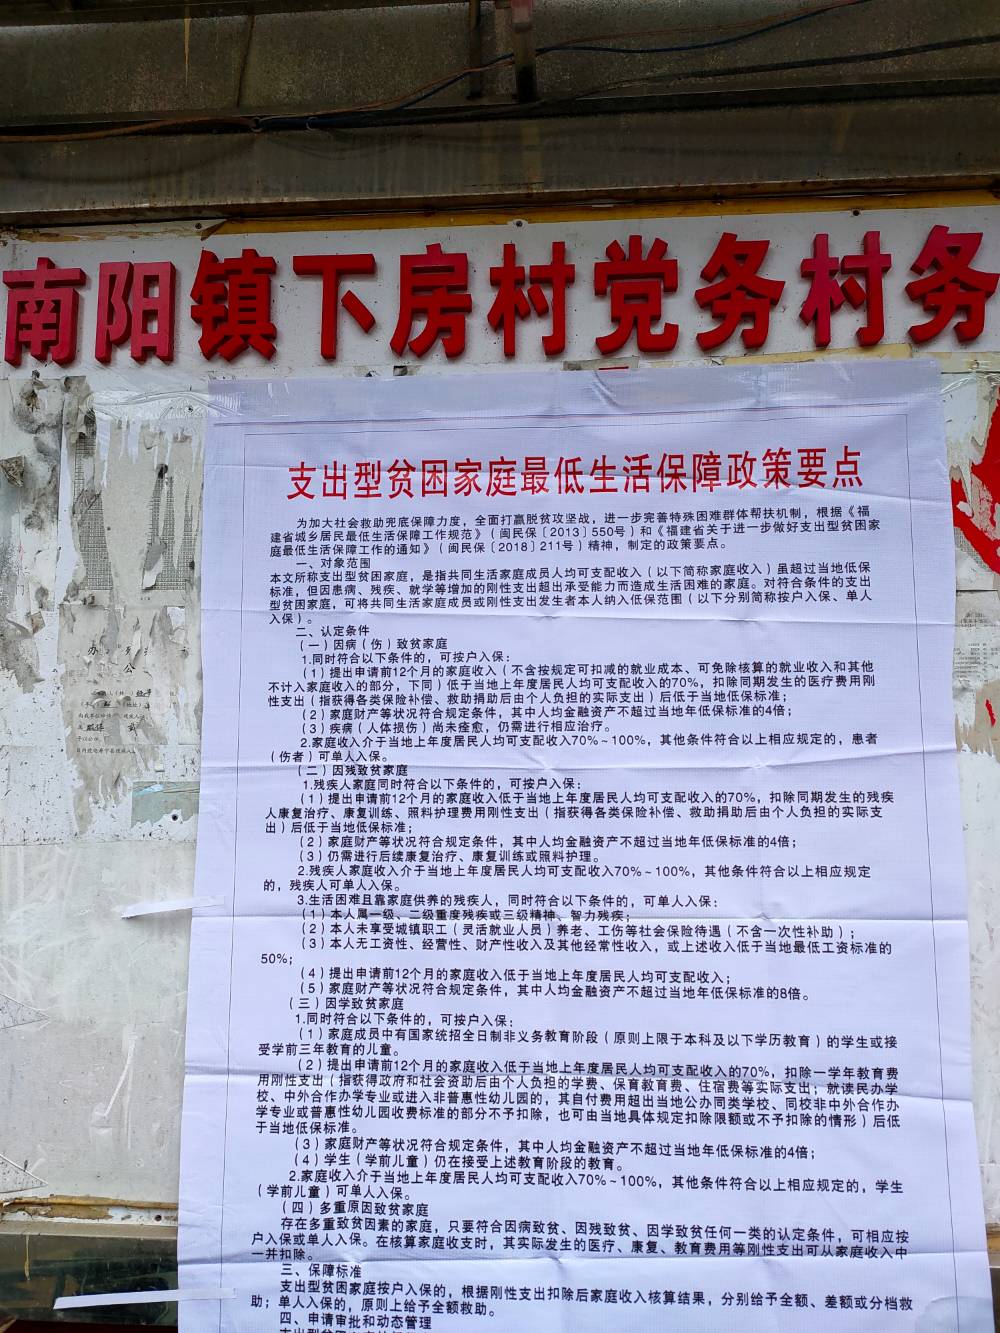 南阳镇下房村党务村务
支出型贫困家庭最低生活保障政策要点
为加大社会救助兜底保障力度，全面打赢脱贫攻坚战，进一步完善特殊困难群体帮扶机制，根据《福
建省城乡居民最低生活保障工作规范》（闽民保〔2013〕550号）和《福建省关于进一步做好支出型贫困家
庭最低生活保障工作的通知》（闽民保〔2018〕211号）精神，制定的政策要点。
一、对象范围
本文所称支出型贫困家庭，是指共同生活家庭成员人均可支配收入（以下简称家庭收入）虽超过当地低保
标准，但因患病、残疾、就学等增加的刚性支出超出承受能力而造成生活困难的家庭。对符合条件的支出
型贫困家庭，可将共同生活家庭成员或刚性支出发生者本人纳入低保范围（以下分别简称按户入保、单人
入保）。
二、认定条件
（一）因病（伤）致贫家庭
1.同时符合以下条件的，可按户入保：
（1）提出申请前12个月的家庭收入（不含按规定可扣减的就业成本、可免除核算的就业收入和其他
不计入家庭收入的部分，下同）低于当地上年度居民人均可支配收入的70%，扣除同期发生的医疗费用刚
性支出（指获得各类保险补偿、救助捐助后由个人负担的实际支出）后低于当地低保标准；
（2）家庭财产等状况符合规定条件，其中人均金融资产不超过当地年低保标准的4倍；
（3）疾病（人体损伤）尚未痊愈，仍需进行相应治疗。
2.家庭收入介于当地上年度居民人均可支配收入70%~100%，其他条件符合以上相应规定的，患者
（伤者）可单人入保。
（二）因残致贫家庭
1.残疾人家庭同时符合以下条件的，可按户入保：
（1）提出申请前12个月的家庭收入低于当地上年度居民人均可支配收入的70%，扣除同期发生的残疾
人康复治疗、康复训练、照料护理费用刚性支出（指获得各类保险补偿、救助捐助后由个人负担的实际支
出）后低于当地低保标准；
（2）家庭财产等状况符合规定条件，其中人均金融资产不超过当地年低保标准的4倍；
（3）仍需进行后续康复治疗、康复训练或照料护理。
2.残疾人家庭收入介于当地上年度居民人均可支配收入70%~100%，其他条件符合以上相应规定
的，残疾人可单人入保。
3.生活困难且靠家庭供养的残疾人，同时符合以下条件的，可单人入保：
（1）本人属一级、二级重度残疾或三级精神、智力残疾；
（2）本人未享受城镇职工（灵活就业人员）养老、工伤等社会保险待遇（不含一次性补助）；
（3）本人无工资性、经营性、财产性收入及其他经常性收入，或上述收入低于当地最低工资标准的
50%；
（4）提出申请前12个月的家庭收入低于当地上年度居民人均可支配收入；
（5）家庭财产等状况符合规定条件，其中人均金融资产不超过当地年低保标准的8倍。
（三）因学致贫家庭
1.同时符合以下条件的，可按户入保：
（1）家庭成员中有国家统招全日制非义务教育阶段（原则上限于本科及以下学历教育）的学生或接
受学前三年教育的儿童。
（2）提出申请前12个月的家庭收入低于当地上年度居民人均可支配收入的70%，扣除一学年教育费
用刚性支出（指获得政府和社会资助后由个人负担的学费、保育教育费、住宿费等实际支出；就读民办学
校、中外合作办学专业或进入非普惠性幼儿园的，其自付费用超出当地公办同类学校、同校非中外合作办
学专业或普惠性幼儿园收费标准的部分不予扣除，也可由当地具体规定扣除限额或不予扣除的情形）后低
于当地低保标准。
（3）家庭财产等状况符合规定条件，其中人均金融资产不超过当地年低保标准的4倍；
（4）学生（学前儿童）仍在接受上述教育阶段的教育。
2.家庭收入介于当地上年度居民人均可支配收入70%~100%，其他条件符合以上相应规定的，学生
（学前儿童）可单人入保。
（四）多重原因致贫家庭
存在多重致贫因素的家庭，只要符合因病致贫、因残致贫、因学致贫任何一类的认定条件，可相应按
户入保或单人入保。在核算家庭收支时，其实际发生的医疗、康复、教育费用等刚性支出可从家庭收入中
一并扣除。
三、保障标准
支出型贫困家庭按户入保的，根据刚性支出扣除后家庭收入核算结果，分别给予全额、差额或分档救
助；单人入保的，原则上给予全额救助。
四、申请审批和动态管理